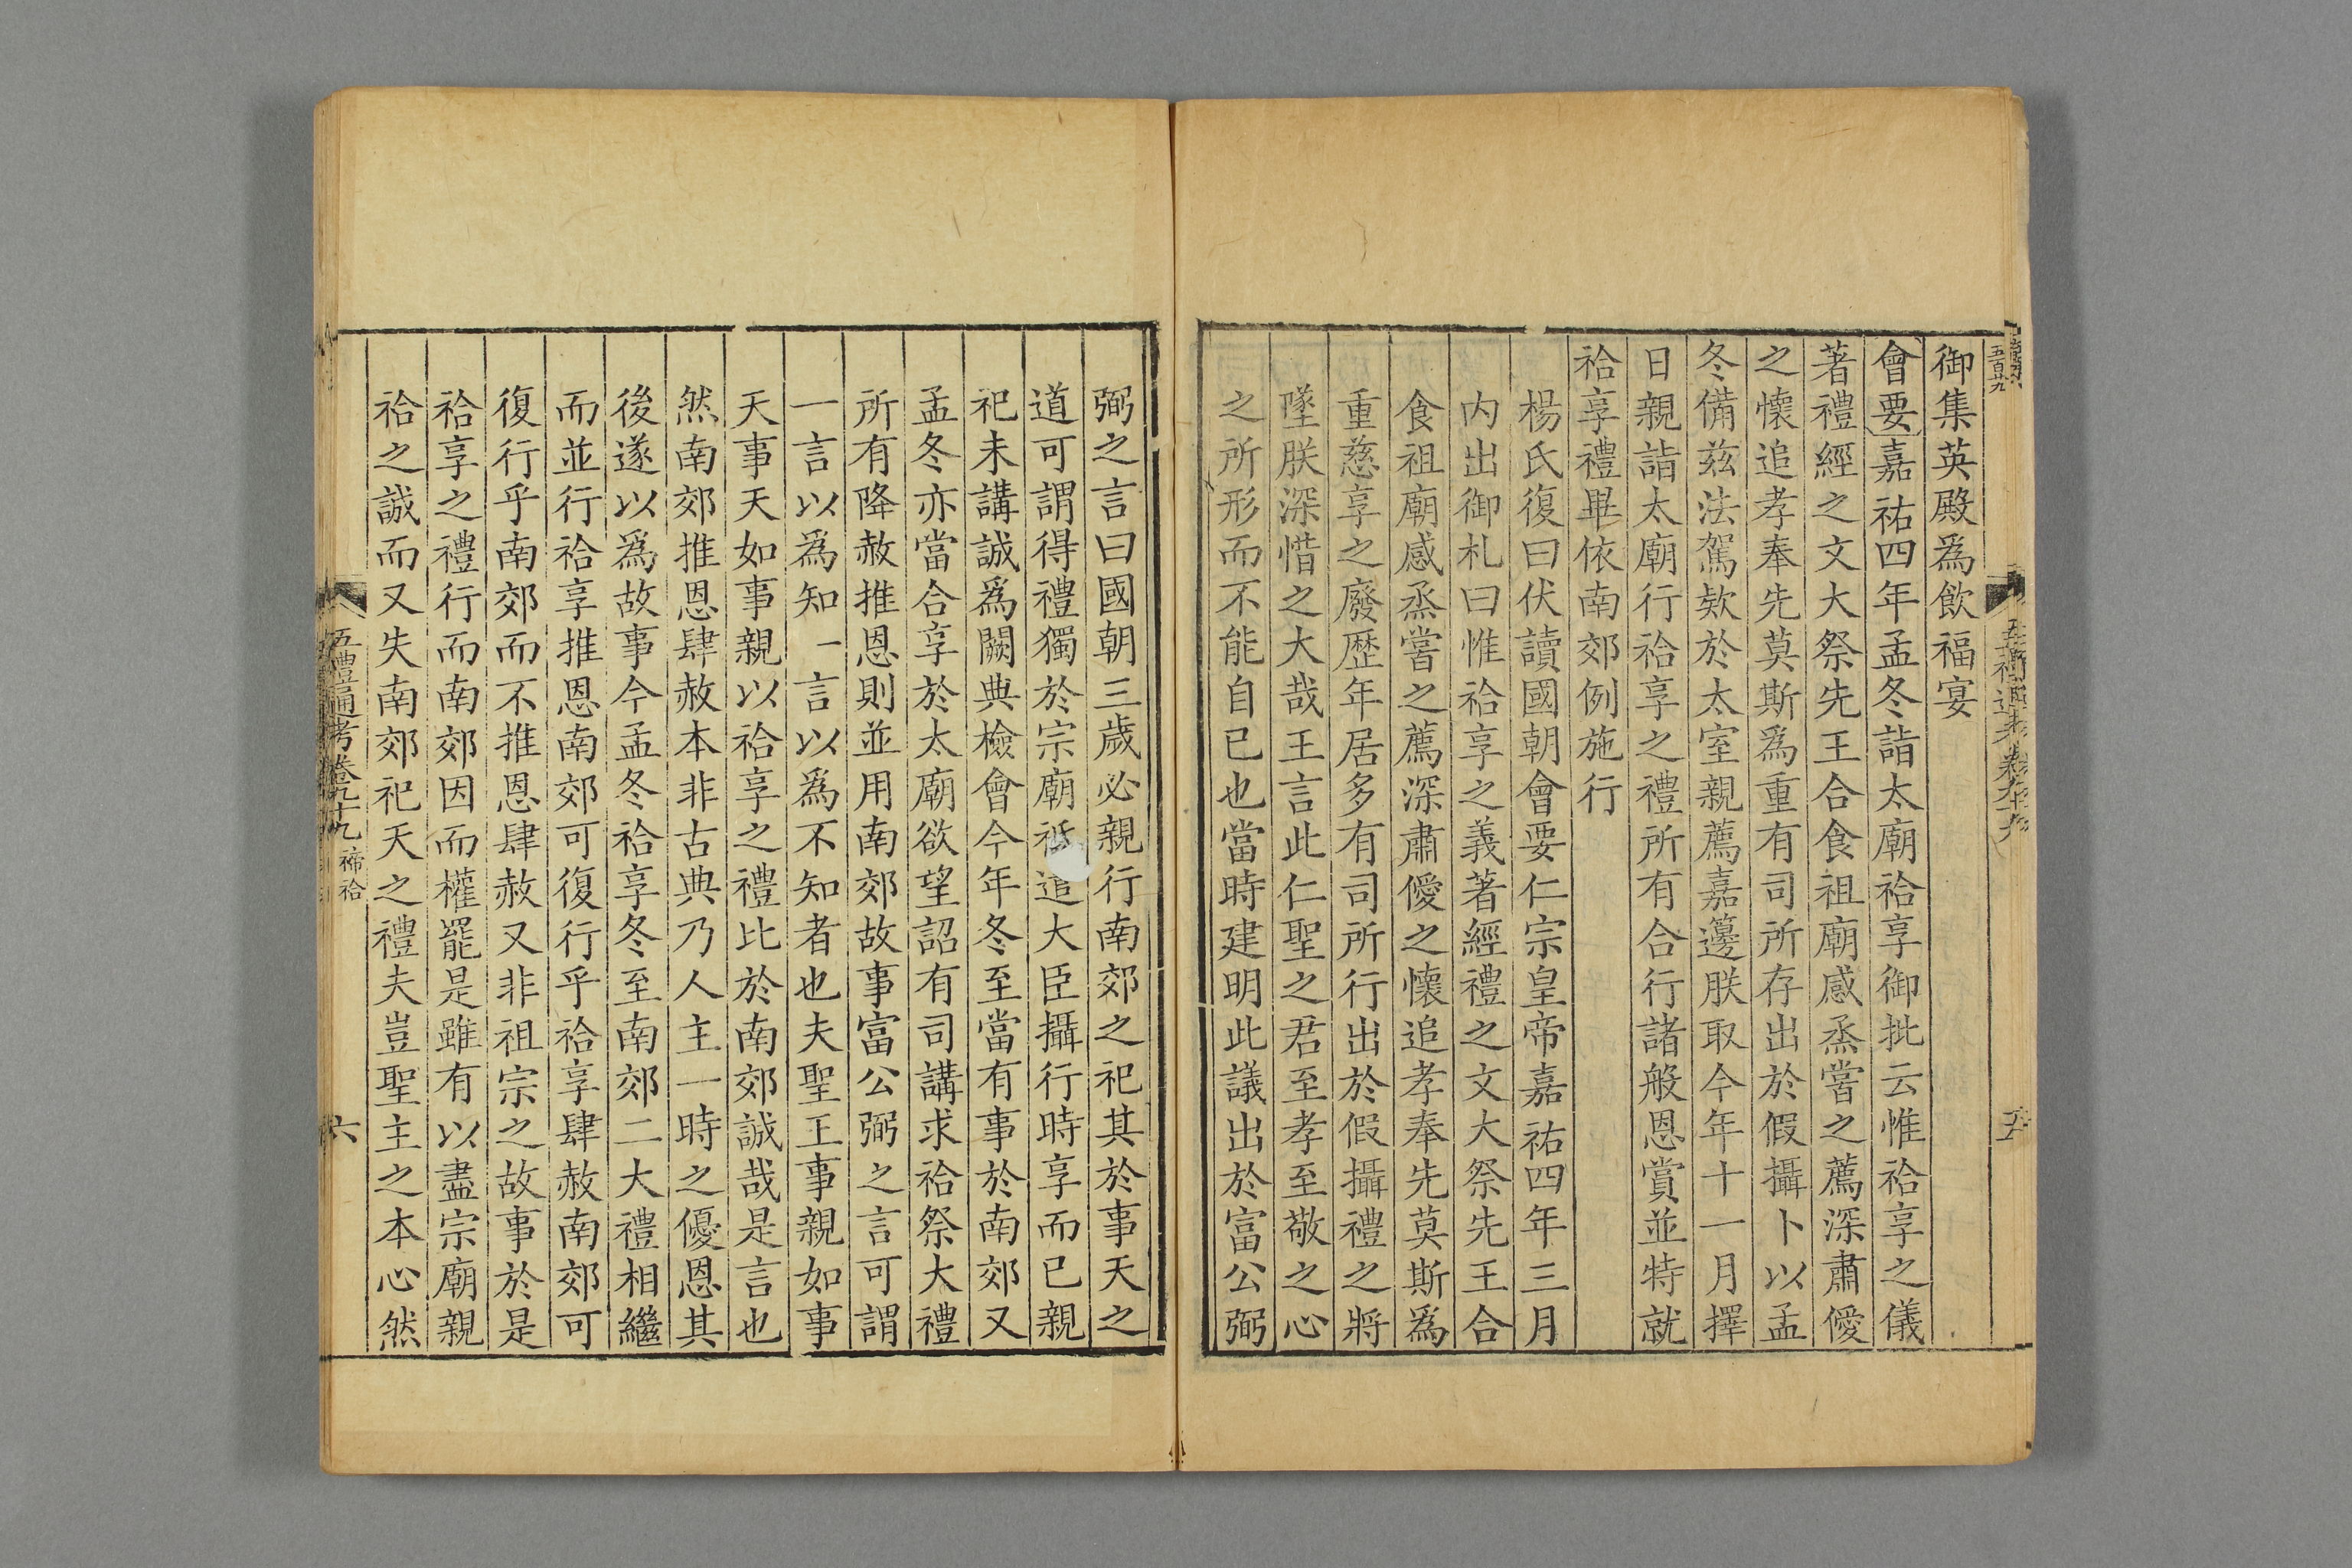 御集英殿爲飲福宴
會要嘉祐四年孟冬詣太廟祫享御批云惟祫享之儀
著禮經之文大祭先王合食祖廟感烝嘗之薦深肅僾
之懷追孝奉先莫斯爲重有司所存出於假攝卜以孟
冬備兹法駕欵於太室親薦嘉籩朕取今年十一月擇
日親詣太廟行祫享之禮所有合行諸般恩賞並特就
祫享禮畢依南郊例施行
楊氏復曰伏讀國朝會要仁宗皇帝嘉祐四年三月
内出御札曰惟祫享之義著經禮之文大祭先王合
食祖廟感烝嘗之薦深肅僾之懷追孝奉先莫斯爲
重慈享之廢歴年居多有司所行出於假攝禮之將
墜朕深惜之大哉王言此仁聖之君至孝至敬之心
之所形而不能自已也當時建明此議出於富公弼
弼之言曰國朝三歲必親行南郊之祀其於事天之
道可謂得禮獨於宗廟祗遣大臣攝行時享而已親
祀未講誠爲闕典檢會今年冬至當有事於南郊又
孟冬亦當合享於太廟欲望詔有司講求祫祭大禮
所有降赦推恩則並用南郊故事富公弼之言可謂
一言以爲知一言以爲不知者也夫聖王事親如事
天事天如事親以祫享之禮比於南郊誠哉是言也
然南郊推恩肆赦本非古典乃人主一時之優恩其
後遂以爲故事今孟冬祫享冬至南郊二大禮相繼
而並行祫享推恩南郊可復行乎祫享肆赦南郊可
復行乎南郊而不推恩肆赦又非祖宗之故事於是
祫享之禮行而南郊因而權罷是雖有以盡宗廟親
祫之誠而又失南郊祀天之禮夫豈聖主之本心然
五禮通考卷九十九 禘祫 六